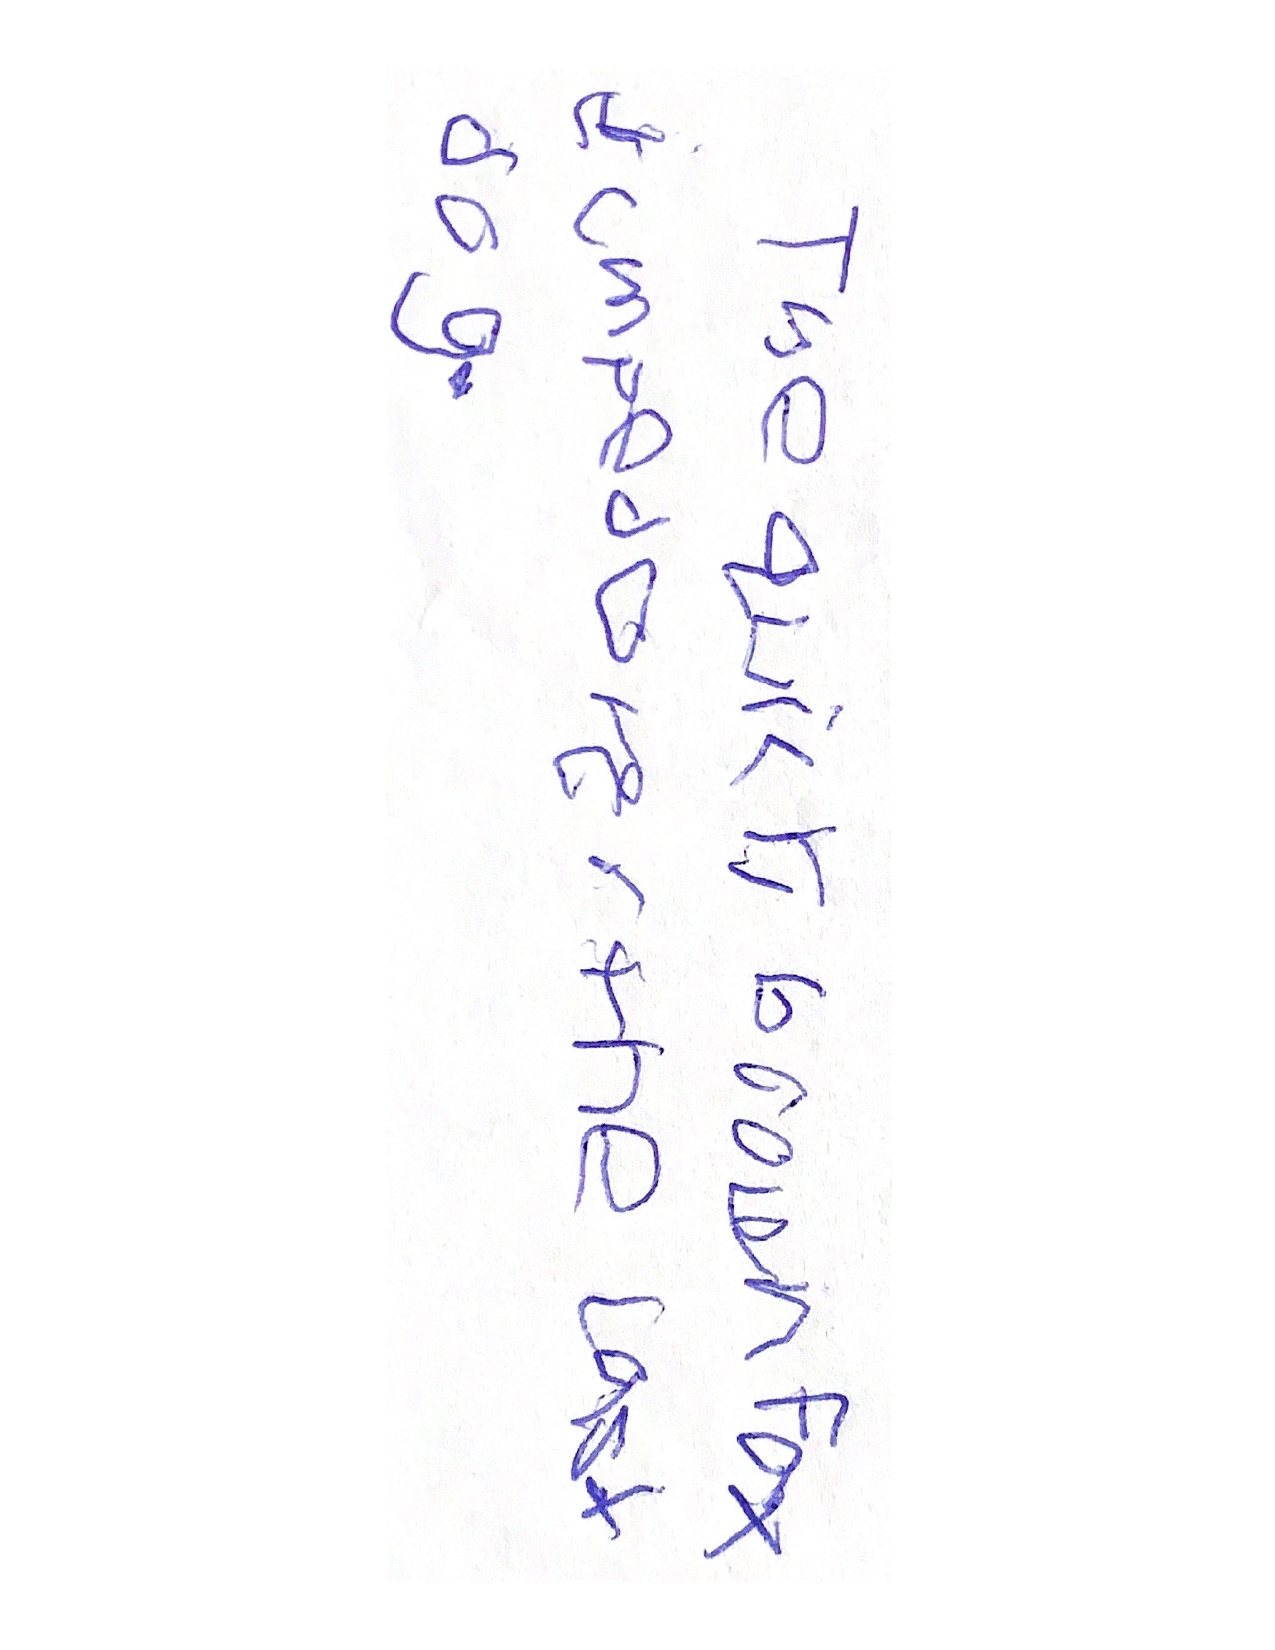 The quick brown fox
jumped over the last
dog.